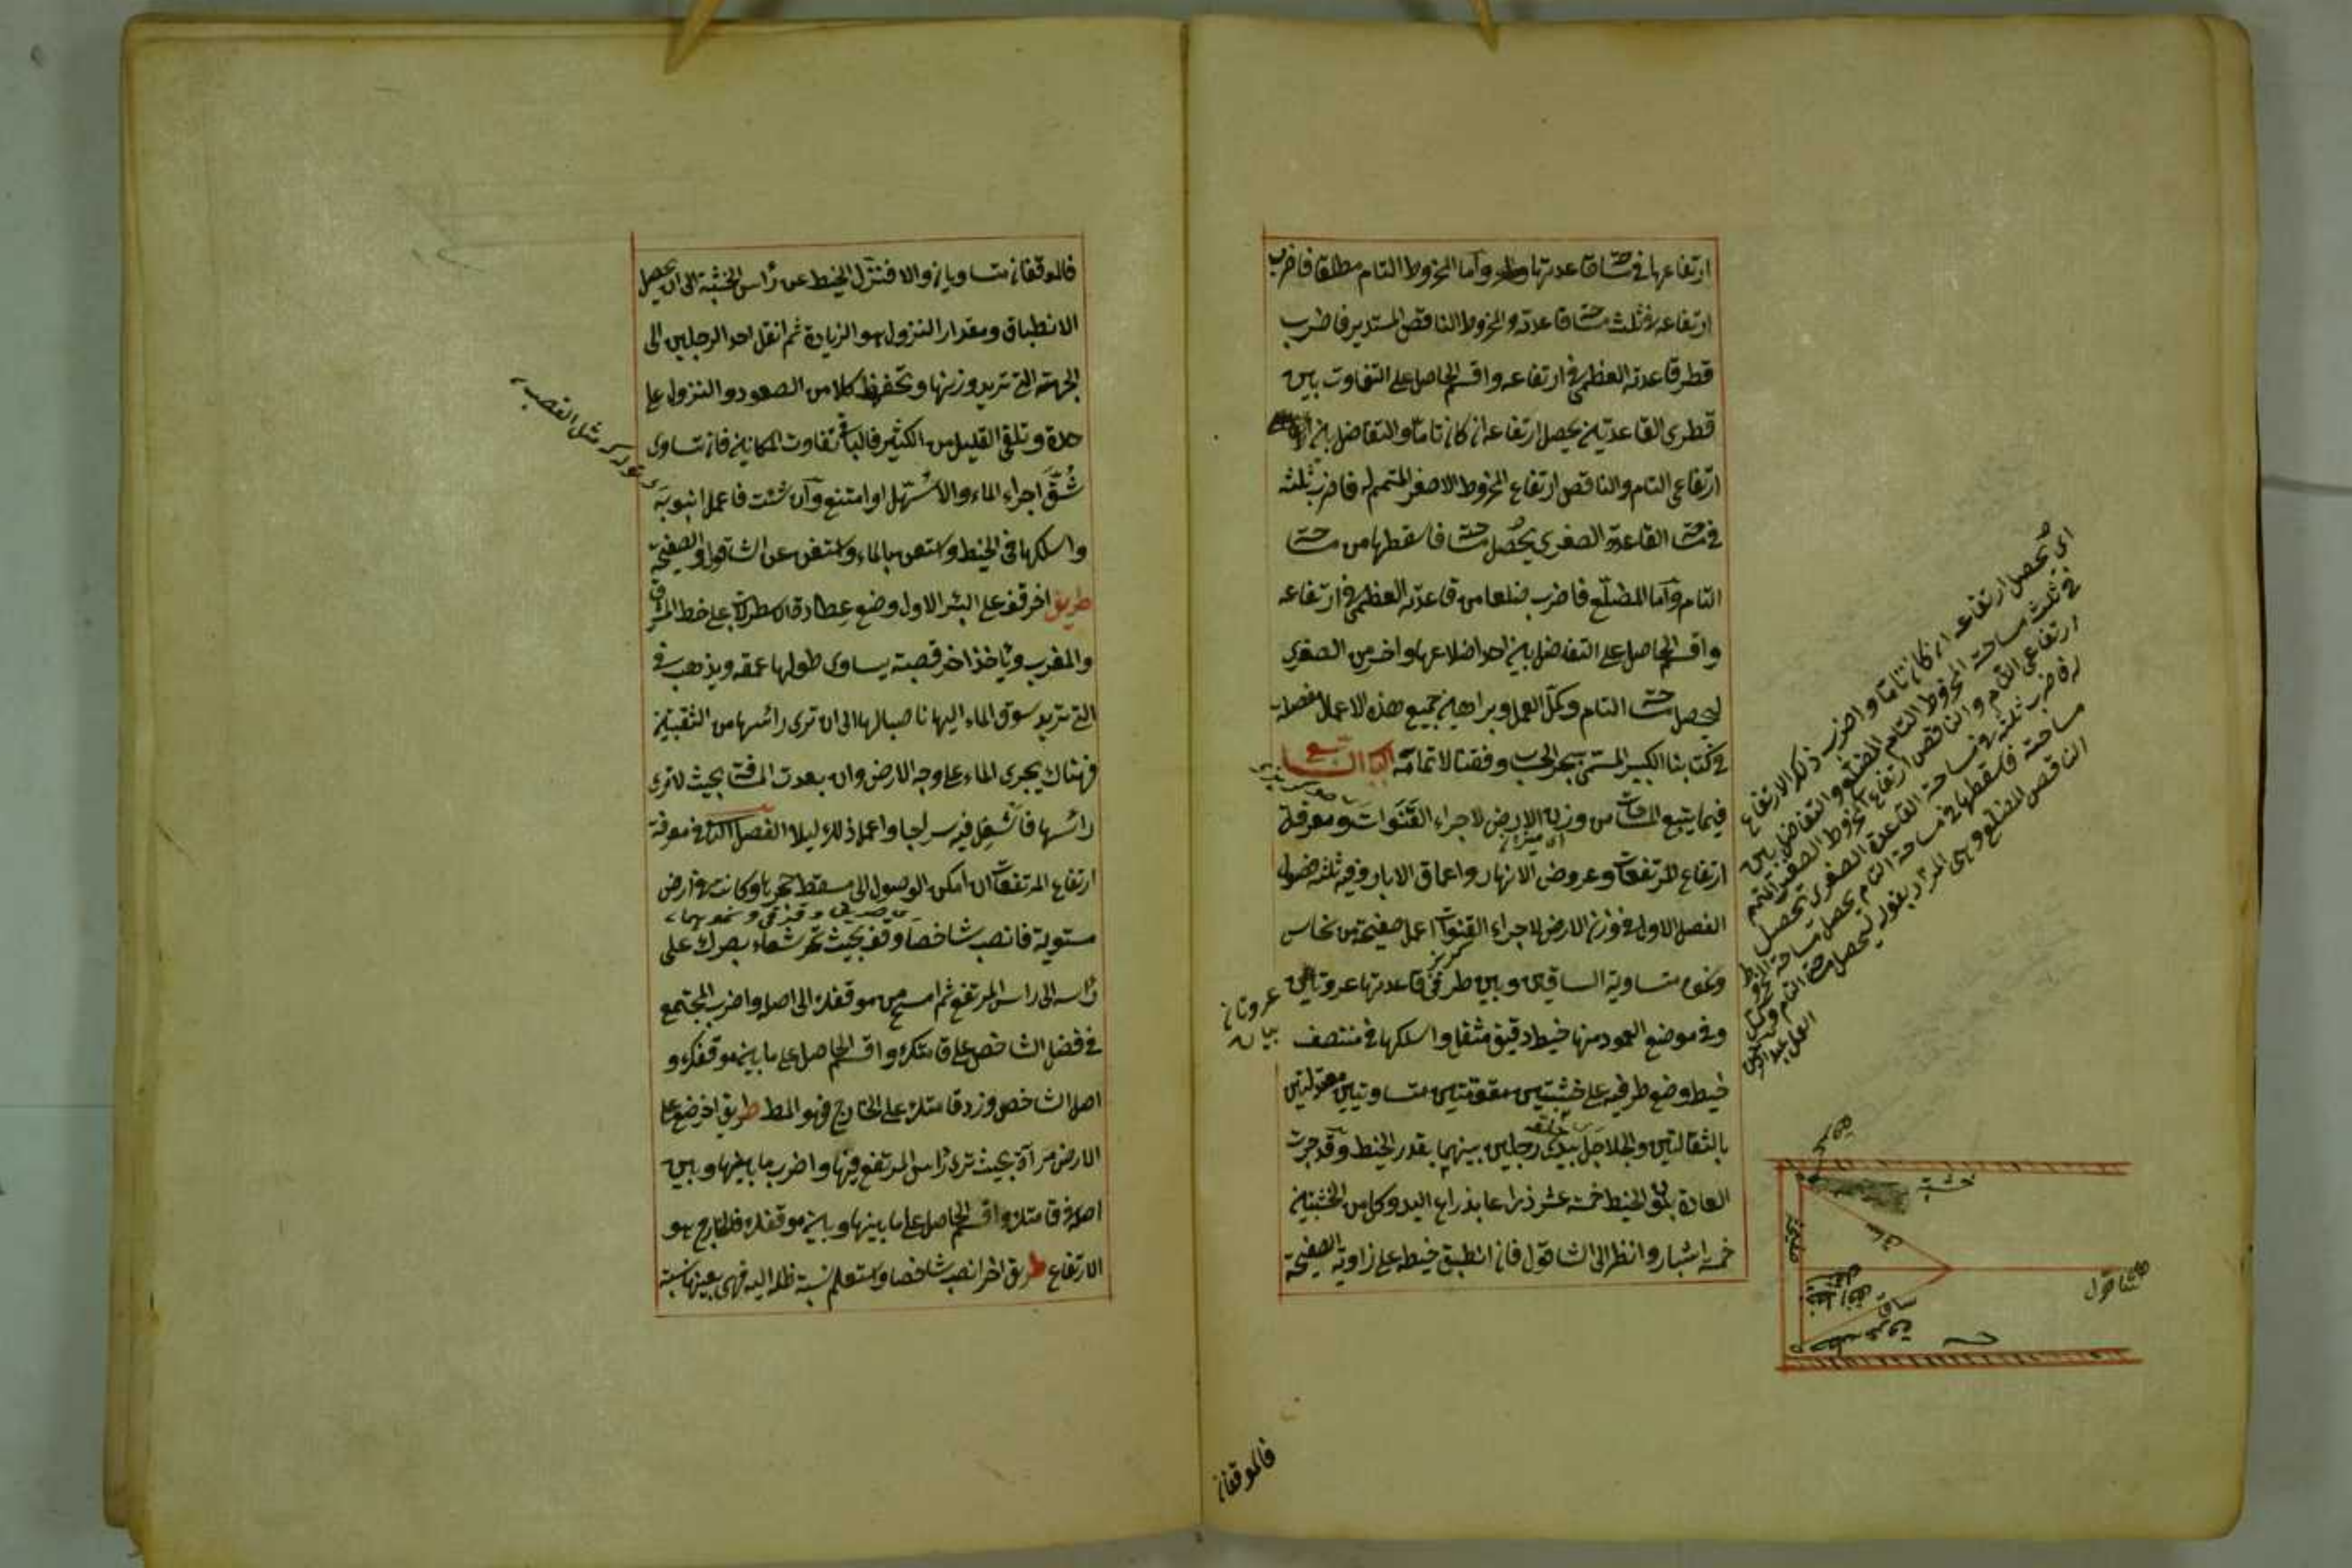 ارتفاعها فى مساحة قاعدتها واما المخروط التام مطلقا فاضرب
ارتفاعه فى ثلث مساحة قاعدته والمخروط الناقص المستدير فاضرب
قطر قاعدته العظمى فى ارتفاعه واقسم الحاصل على التفاوت بين
قطرى القاعدتين يحصل ارتفاعه ان كان تاما والتفاضل بين
ارتفاعى التام والناقص ارتفاع المخروط الاصغر المتمم له فاضرب ثلثه
فى مساحة القاعدة الصغرى يحصل مساحته فاسقطها من مساحة
التام واما المضلع فاضرب ضلعا من قاعدته العظمى فى ارتفاعه
واقسم الحاصل على التفاضل بين احد اضلاعها واخر من الصغرى
ليحصل مساحة التام وكمل العمل وبراهين جميع هذه الاعمال مفصلة
فى كتابنا الكبير المسمى ببحر الحساب وفقنا لاتمامه الباب السابع
فيما يتبع المساحات من وزن الارض لاجراء القنوات ومعرفة
ارتفاع المرتفعات وعروض الانهار واعماق الابار وفيه ثلثة فصول
الفصل الاول فى وزن الارض لاجراء القنوات اعمل صفيحة من نحاس
ونحوه متساوية الساقين وبين طرفى قاعدتها عروتان
وفى موضع العمود منها خيط دقيق مثقل واسلكها فى منتصف
خيط وضع طرفيه على خشبتين مقومتين متساويتين معتدلتين
بالثقالتين والجلاجل بيدى رجلين بينهما بقدر الخيط وقد جرت
العادة بكون الخيط خمسة عشر ذراعا بذراع اليد وكل من الخشبتين
خمسة اشبار وانظر الى الشاقول فان انطبق خيطه على زاوية الصفيحة
عروتان
اى يحصل ارتفاعه ان كان تاما واضرب ذلك الارتفاع
فى ثلث مساحة المخروط التام المضلع والتفاضل بين
ارتفاعى التام والناقص ارتفاع المخروط الصغير المتمم
له فاضرب ثلثه فى مساحة القاعدة الصغرى يحصل
مساحته فاسقطها من مساحة التام يحصل مساحة المخروط
الناقص المضلع وهى المراد بقوله ليحصل مساحة التام وكمل
العمل
خشبة
ساق
ساق
شاقول
فالموقفان
فالموقفان متساويان والا فنزل الخيط عن رأس الخشبة الى ان يحصل
الانطباق ومقدار النزول هو الزيادة ثم انقل احد الرجلين الى
الجهة التى تريد وزنها وتحفظ كلا من الصعود والنزول على
حدة وتلقى القليل من الكثير فالباقى تفاوت المكانين فان تساوى
شق اجراء الماء والا سهل او امتنع وان شئت فاعمل انبوبة
واسلكها فى الخيط واستعن بالماء واستغن عن الشاقول والصفيحة
طريق اخر قف على البئر الاول وضع عضادة الاسطرلاب على خط المشرق
والمغرب وياخذ اخر قصبة يساوى طولها عمقه ويذهب فى
التى تريد سوق الماء اليها ناصبا لها الى ان ترى رأسها من الثقبتين
فهناك يجرى الماء على وجه الارض وان بعدت المسافة بحيث لا ترى
رأسها فاشعل فيه سراجا واعمل ذلك ليلا الفصل الثانى فى معرفة
ارتفاع المرتفعات ان امكن الوصول الى مسقط حجرها وكانت فى ارض
مستوية فانصب شاخصا وقف بحيث يمر شعاع بصرك على
رأسه الى رأس المرتفع ثم امسح من موقفك الى اصله واضرب المجتمع
فى فضل الشاخص على قامتك واقسم الحاصل على ما بين موقفك و
اصل الشاخص وزد قامتك على الخارج فهو المط طريق اخر ضع على
الارض مرآة بحيث ترى رأس المرتفع فيها واضرب ما بينها وبين
اصله فى قامتك واقسم الحاصل على ما بينها وبين موقفك فالخارج هو
الارتفاع طريق اخر انصب شاخصا واستعلم نسبة ظله اليه فهى بعينها نسبة